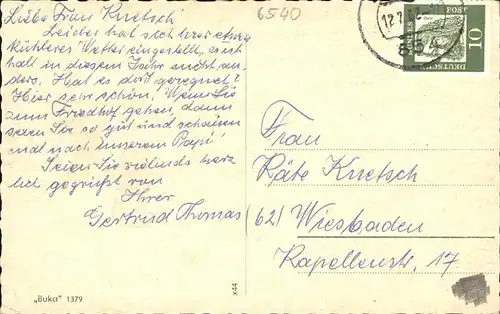 Liebe Frau Knetsch!
Leider hat sich hier etwas
kühleres Wetter eingestellt, es ist
halt in diesem Jahr nicht an-
ders. Hat es dort geregnet?
Hier sehr schön. Wenn Sie
zum Friedhof gehen, dann
seien Sie so gut und schauen
mal nach unserem Papi!
Seien Sie vielmals herz
lich gegrüßt von
Ihrer
Gertrud Thomas
„Buka" 1379
x44
6540
DEUTSCHE
POST
10
Frau
Käte Knetsch
(62) Wiesbaden
Kapellenstr. 17